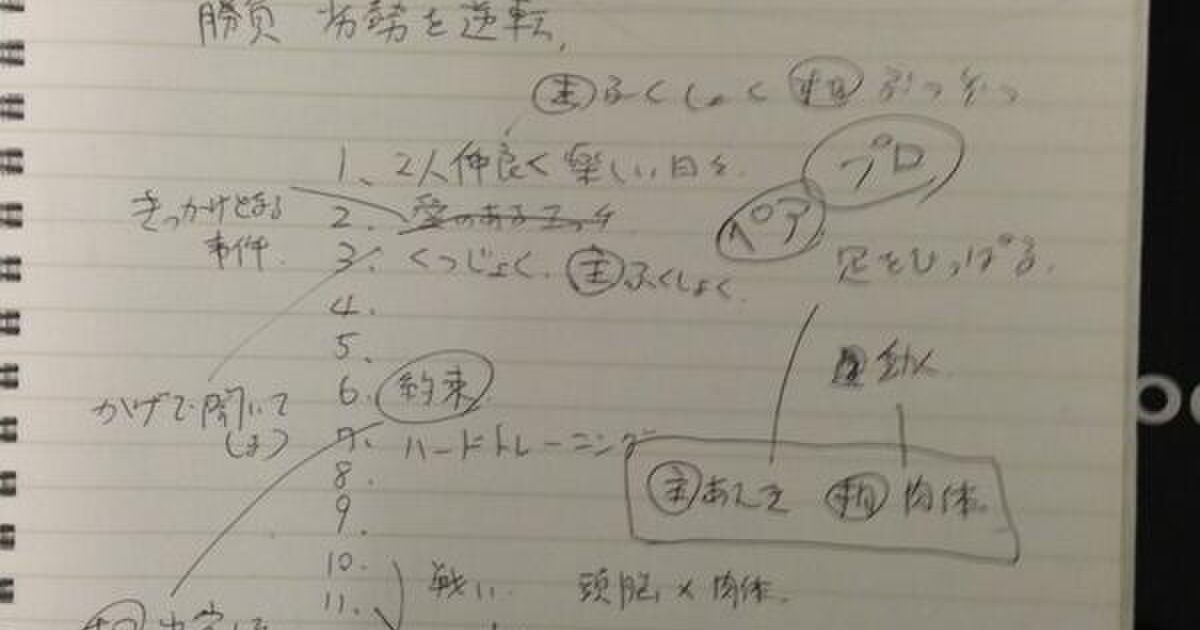 勝負 劣勢を逆転、
主 ふくしょく 相
1、2人仲良く楽しい日々。
プロ
ペア
きっかけとなる
事件.
2. 愛のあるエッチ
3. くつじょく. 主 ふくしょく.
足をひっぱる.
4.
5.
6. 約束
かげで聞いて
しまう
7. ハードトレーニング
8.
9.
主 相 肉体。
10. 戦い. 頭脳×肉体.
11.